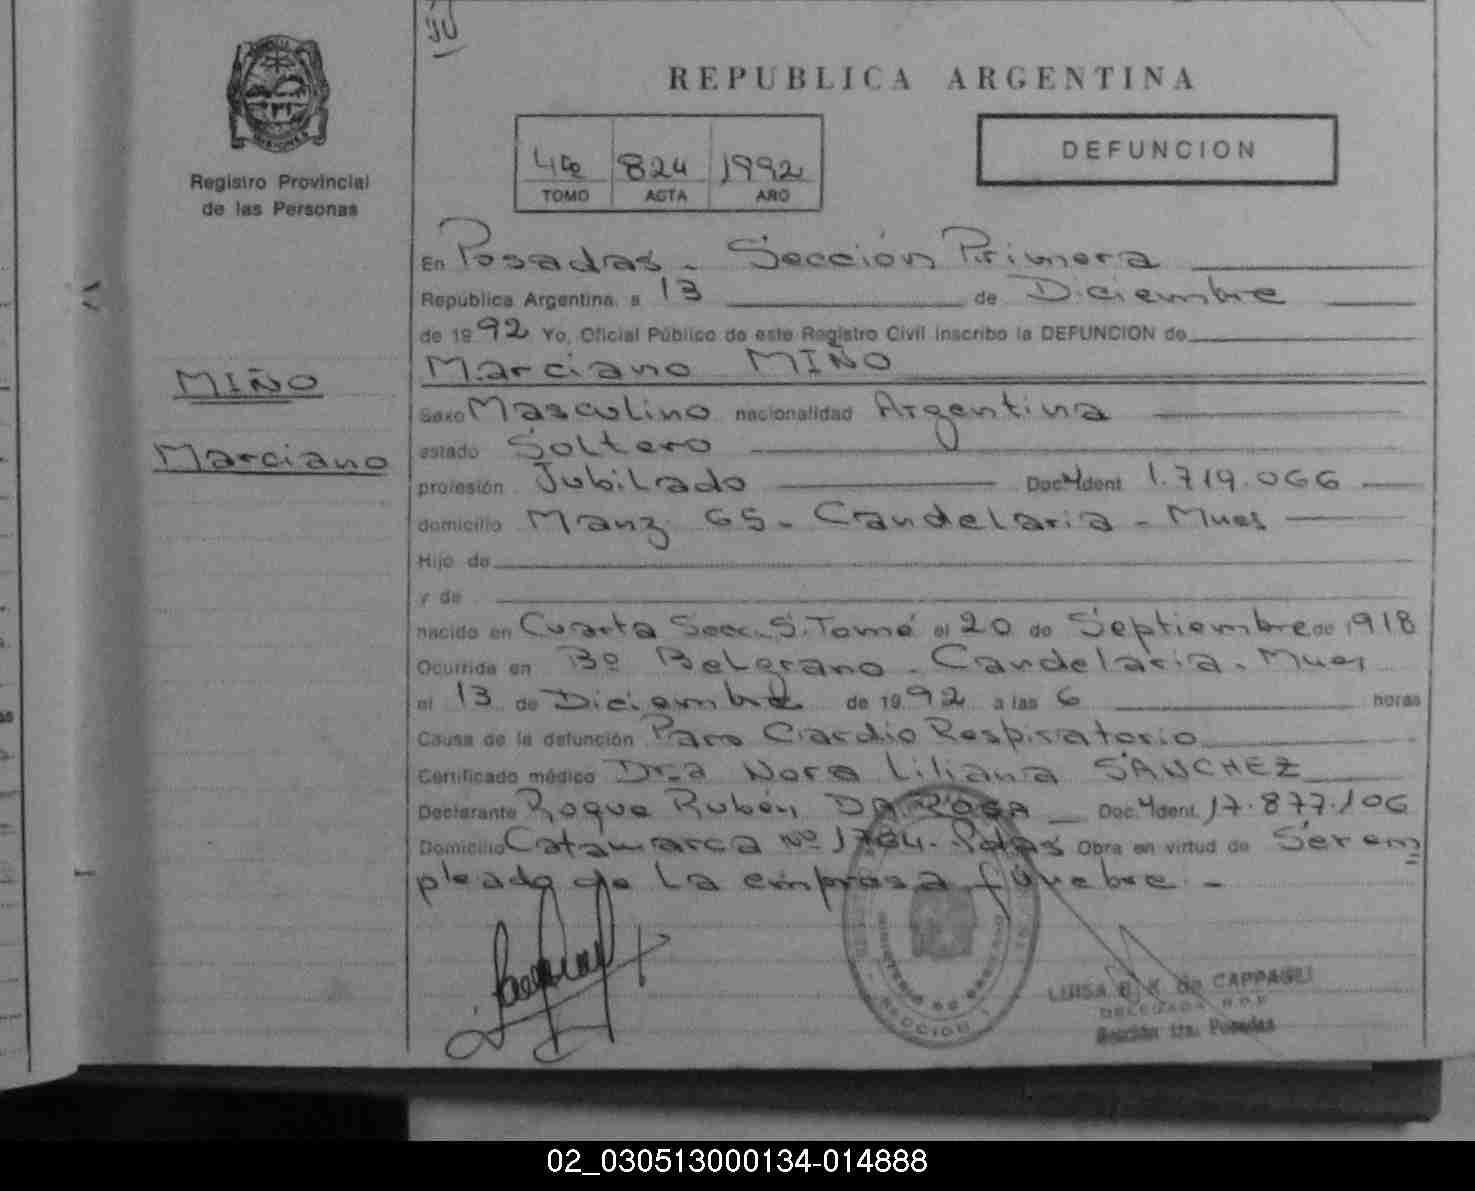 REPUBLICA ARGENTINA
DEFUNCION
4to 824 1992
TOMO ACTA AÑO
Registro Provincial
de las Personas
MIÑO
Marciano
En Posadas - Sección Primera
República Argentina, a 13 de Diciembre
de 1992 Yo, Oficial Público de este Registro Civil inscribo la DEFUNCION de
Marciano MIÑO
Sexo Masculino nacionalidad Argentina
estado Soltero
profesión Jubilado Doc. Ident. 1.719.066
domicilio Manz 65 - Candelaria - Mnes
Hijo de
y de
nacido en Cuarta Secc. S. Tomé el 20 de Septiembre de 1918
Ocurrida en Bº Belgrano - Candelaria - Mnes
el 13 de Diciembre de 1992 a las 6 horas
Causa de la defunción Paro Cardio Respiratorio
Certificado médico Dra Nora Liliana SÁNCHEZ
Declarante Roque Rubén DA ROSA Doc. Ident. 17.877.106
Domicilio Catamarca Nº 1764 - Pdas Obra en virtud de Ser em
pleado de la empresa fúnebre -
LUISA B. K. de CAPPAGLI
DELEGADA R.P.P
Sección 1ra. Posadas
02_030513000134-014888